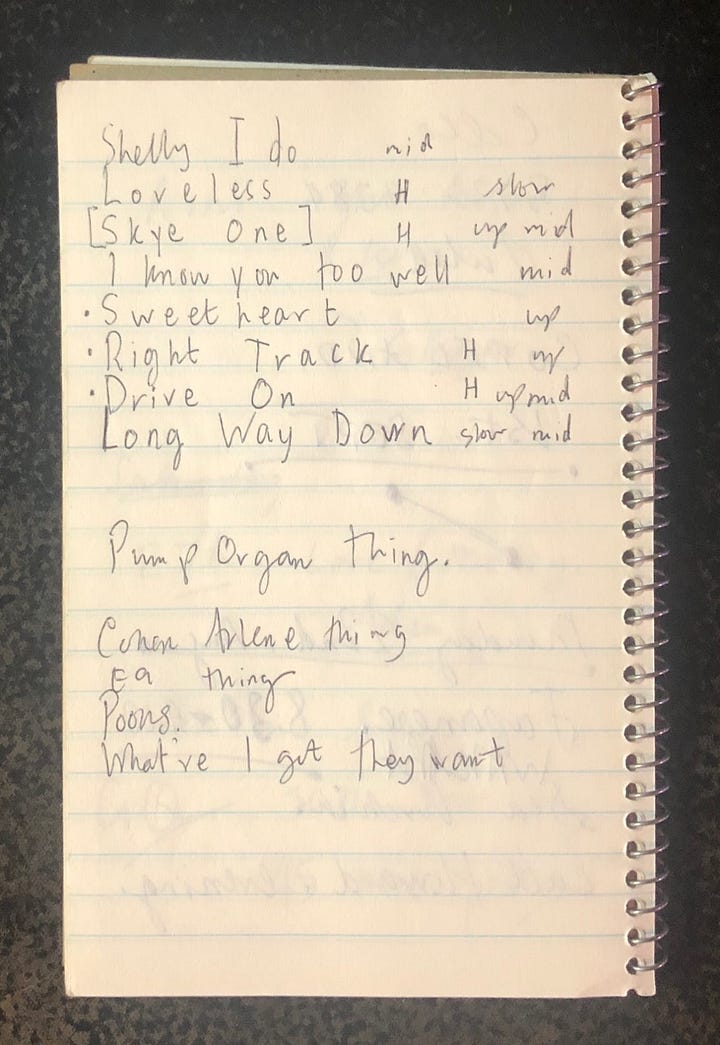 Shelly I do mid
Loveless H slow
[Skye One] H up mid
I know you too well mid
· Sweetheart up
· Right Track H up
· Drive On H up mid
Long Way Down slow mid
Pump Organ thing.
Cohen Arlene thing
Ea thing
Poons.
What've I got they want